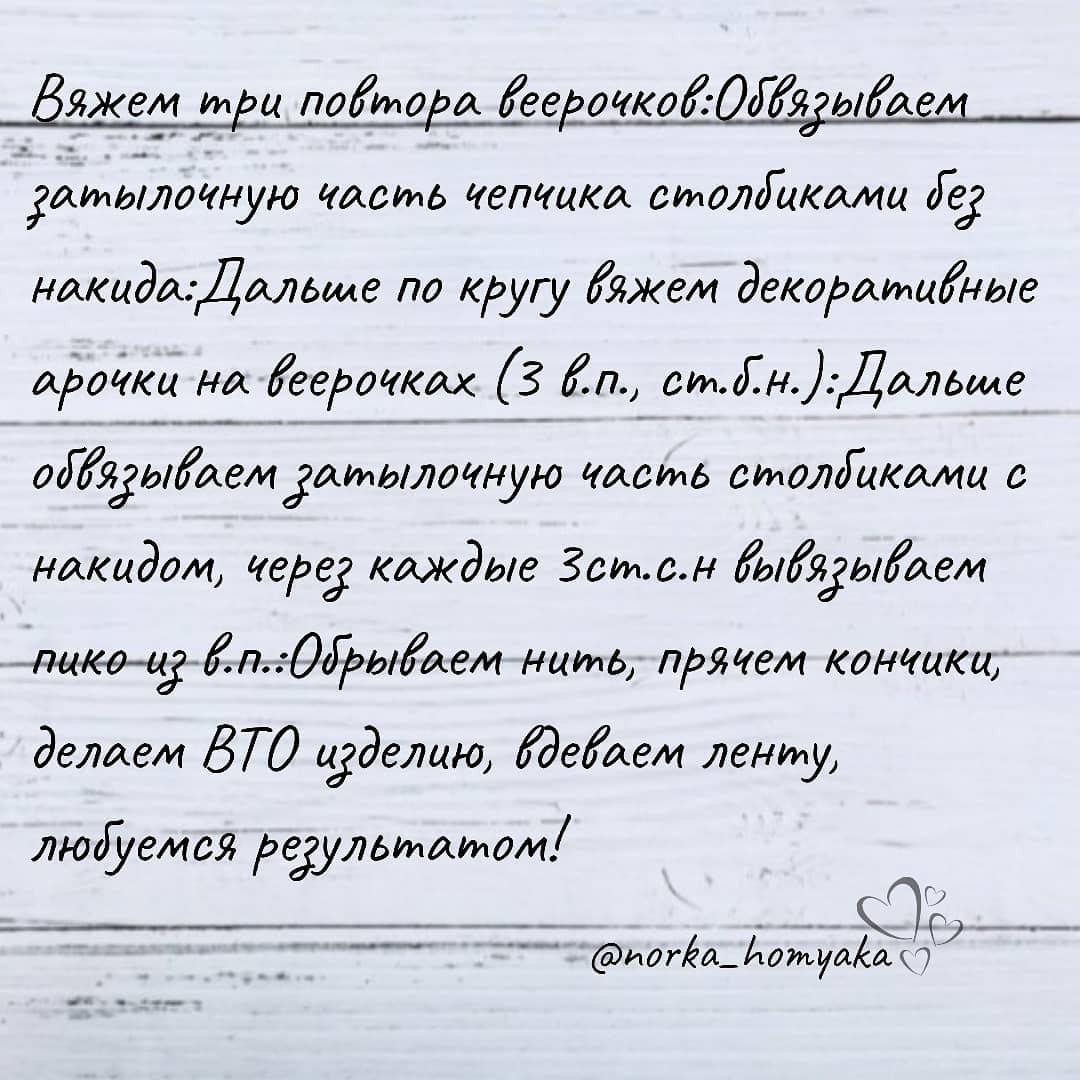 Вяжем три повтора веерочков:Обвязываем
затылочную часть чепчика столбиками без
накида:Дальше по кругу вяжем декоративные
арочки на веерочках (3 в.п., ст.б.н.):Дальше
обвязываем затылочную часть столбиками с
накидом, через каждые 3ст.с.н вывязываем
пико из в.п.:Обрываем нить, прячем кончики,
делаем ВТО изделию, вдеваем ленту,
любуемся результатом!
@norka_homyaka